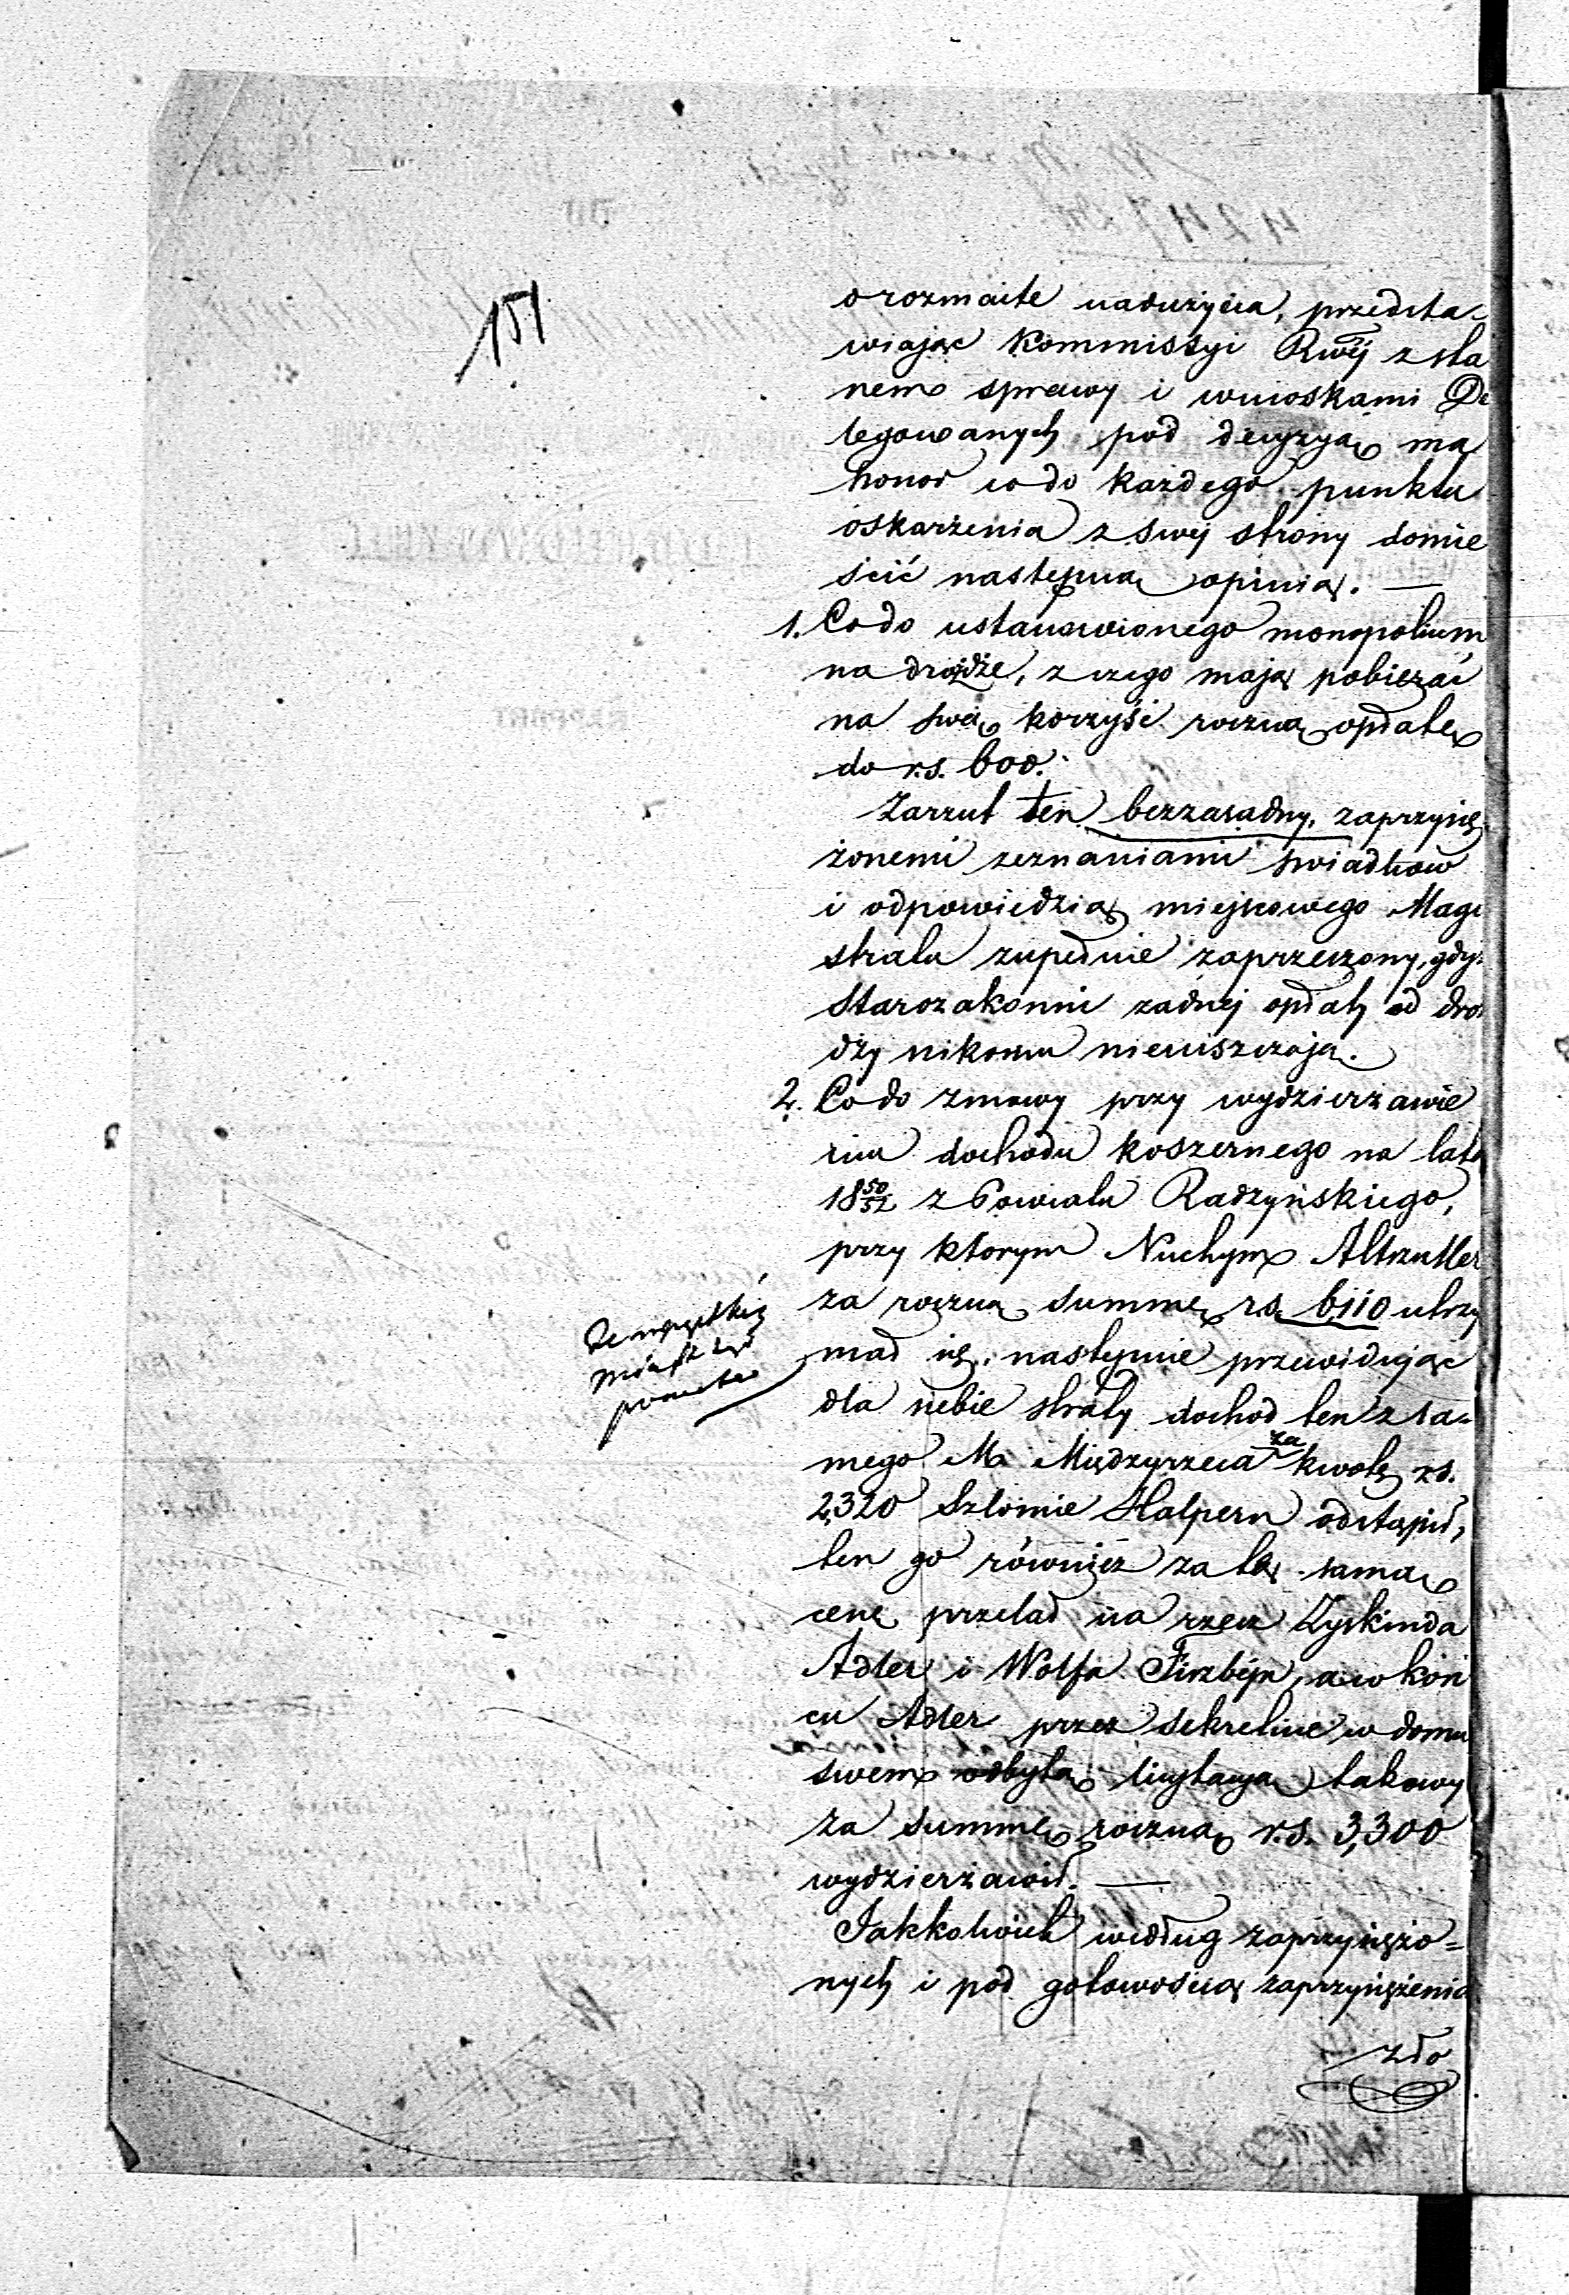 151
o rozmaite nadużycia, przedsta-
wiając Kommissyi Rwej z sta
nem sprawy i wnioskami De
legowanych pod decyzyą ma
honor co do każdego punktu
oskarżenia z swej strony domie
ścić następną opinią. —
1. Co do ustanowionego monopolium
na drożdże, z czego mają pobierać
na swą korzyść roczną opłatę
do r.s. 600.
Zarzut ten bezzasadny, zaprzysię
żonemi zeznaniami świadków
i odpowiedzią miejscowego Magi
stratu zupełnie zaprzeczony, gdyż
Starozakonni żadnej opłaty od droż
dży nikomu nieuiszczają.
2. Co do zmowy przy wydzierżawie
niu dochodu koszernego na lata
18 50/52 z Powiatu Radzyńskiego,
przy którym Nuchym Altszuller
za roczną summę rs. 6,110 utrzy
mał się, następnie przewidując
dla siebie straty dochod ten z sa=
mego M. Międzyrzeca za kwotę rs.
2,320 Szlomie Halpern odstąpił,
ten go również za tę samą
cenę przelał na rzecz Zyskinda
Adler i Wolfa Finzbejn, a w koń
cu Adler przez sekretnie w domu
swem odbytą licytacyą takowy
za summę roczną r.s. 3,300
wydzierżawił. —
Jakkolwiek według zaprzysiężo=
nych i pod gotowością zaprzysiężenia
zło